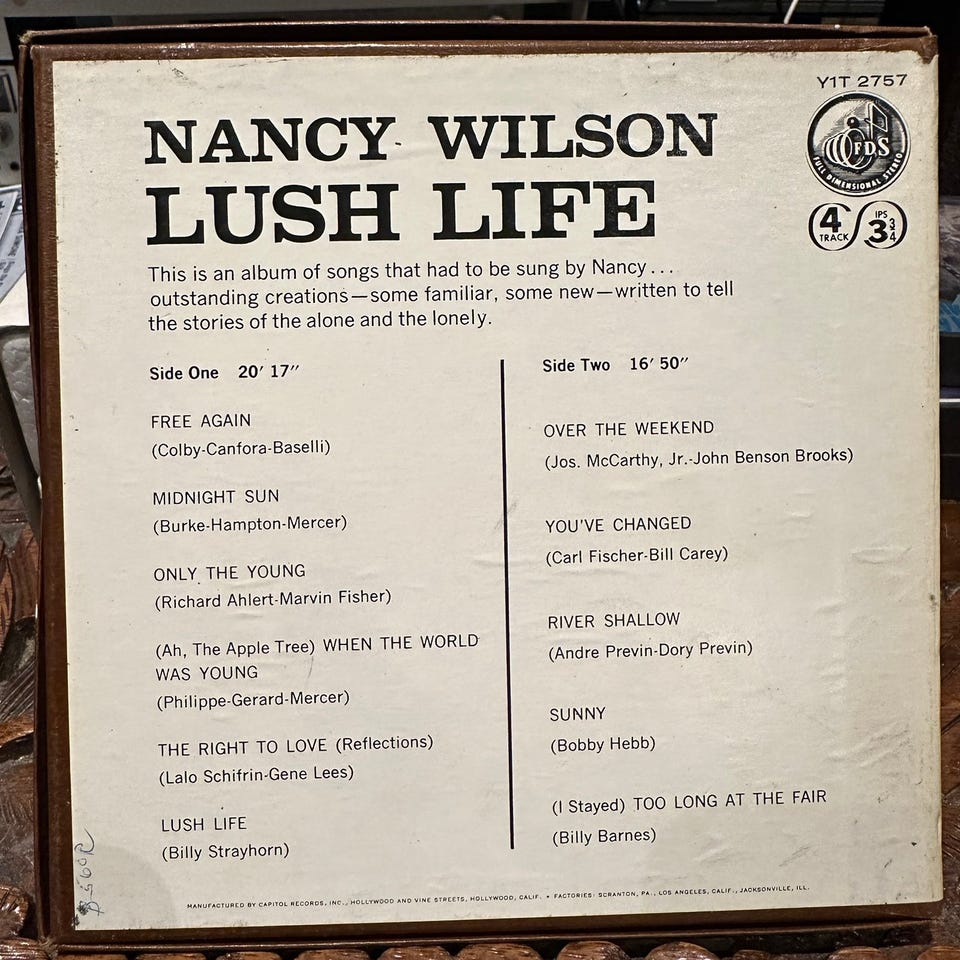 Y1T 2757
FDS
FULL DIMENSIONAL STEREO
4 TRACK
IPS 3 3/4
NANCY WILSON
LUSH LIFE
This is an album of songs that had to be sung by Nancy...
outstanding creations—some familiar, some new—written to tell
the stories of the alone and the lonely.
Side One 20′ 17″
FREE AGAIN
(Colby-Canfora-Baselli)
MIDNIGHT SUN
(Burke-Hampton-Mercer)
ONLY THE YOUNG
(Richard Ahlert-Marvin Fisher)
(Ah, The Apple Tree) WHEN THE WORLD
WAS YOUNG
(Philippe-Gerard-Mercer)
THE RIGHT TO LOVE (Reflections)
(Lalo Schifrin-Gene Lees)
LUSH LIFE
(Billy Strayhorn)
Side Two 16′ 50″
OVER THE WEEKEND
(Jos. McCarthy, Jr.-John Benson Brooks)
YOU'VE CHANGED
(Carl Fischer-Bill Carey)
RIVER SHALLOW
(Andre Previn-Dory Previn)
SUNNY
(Bobby Hebb)
(I Stayed) TOO LONG AT THE FAIR
(Billy Barnes)
MANUFACTURED BY CAPITOL RECORDS, INC., HOLLYWOOD AND VINE STREETS, HOLLYWOOD, CALIF. • FACTORIES: SCRANTON, PA., LOS ANGELES, CALIF., JACKSONVILLE, ILL.